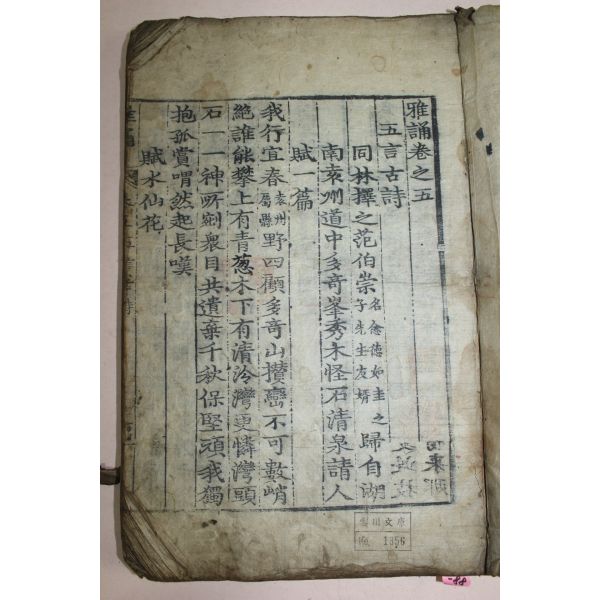 雅誦卷之五
五言古詩
同林擇之范伯崇名念德如圭之子先生友婿歸自湖
南袁州道中多奇峯秀木怪石清泉請人
賦一篇
我行宜春袁州屬縣野四顧多奇山攢巒不可數峭
絶誰能攀上有青葱木下有清泠灣更憐灣頭
石一一神所剜衆目共遺棄千秋保堅頑我獨
抱孤賞喟然起長嘆
賦水仙花
川文庫
1856
-88